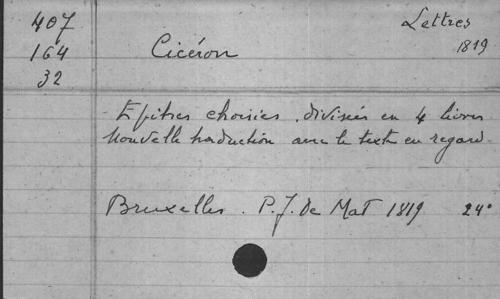 407
164
32
Lettres
1819
Cicéron
Epitres choisies. divisées en 4 livres
Nouvelle traduction avec le texte en regard.
Bruxelles. P. J. De Mat 1819 24°